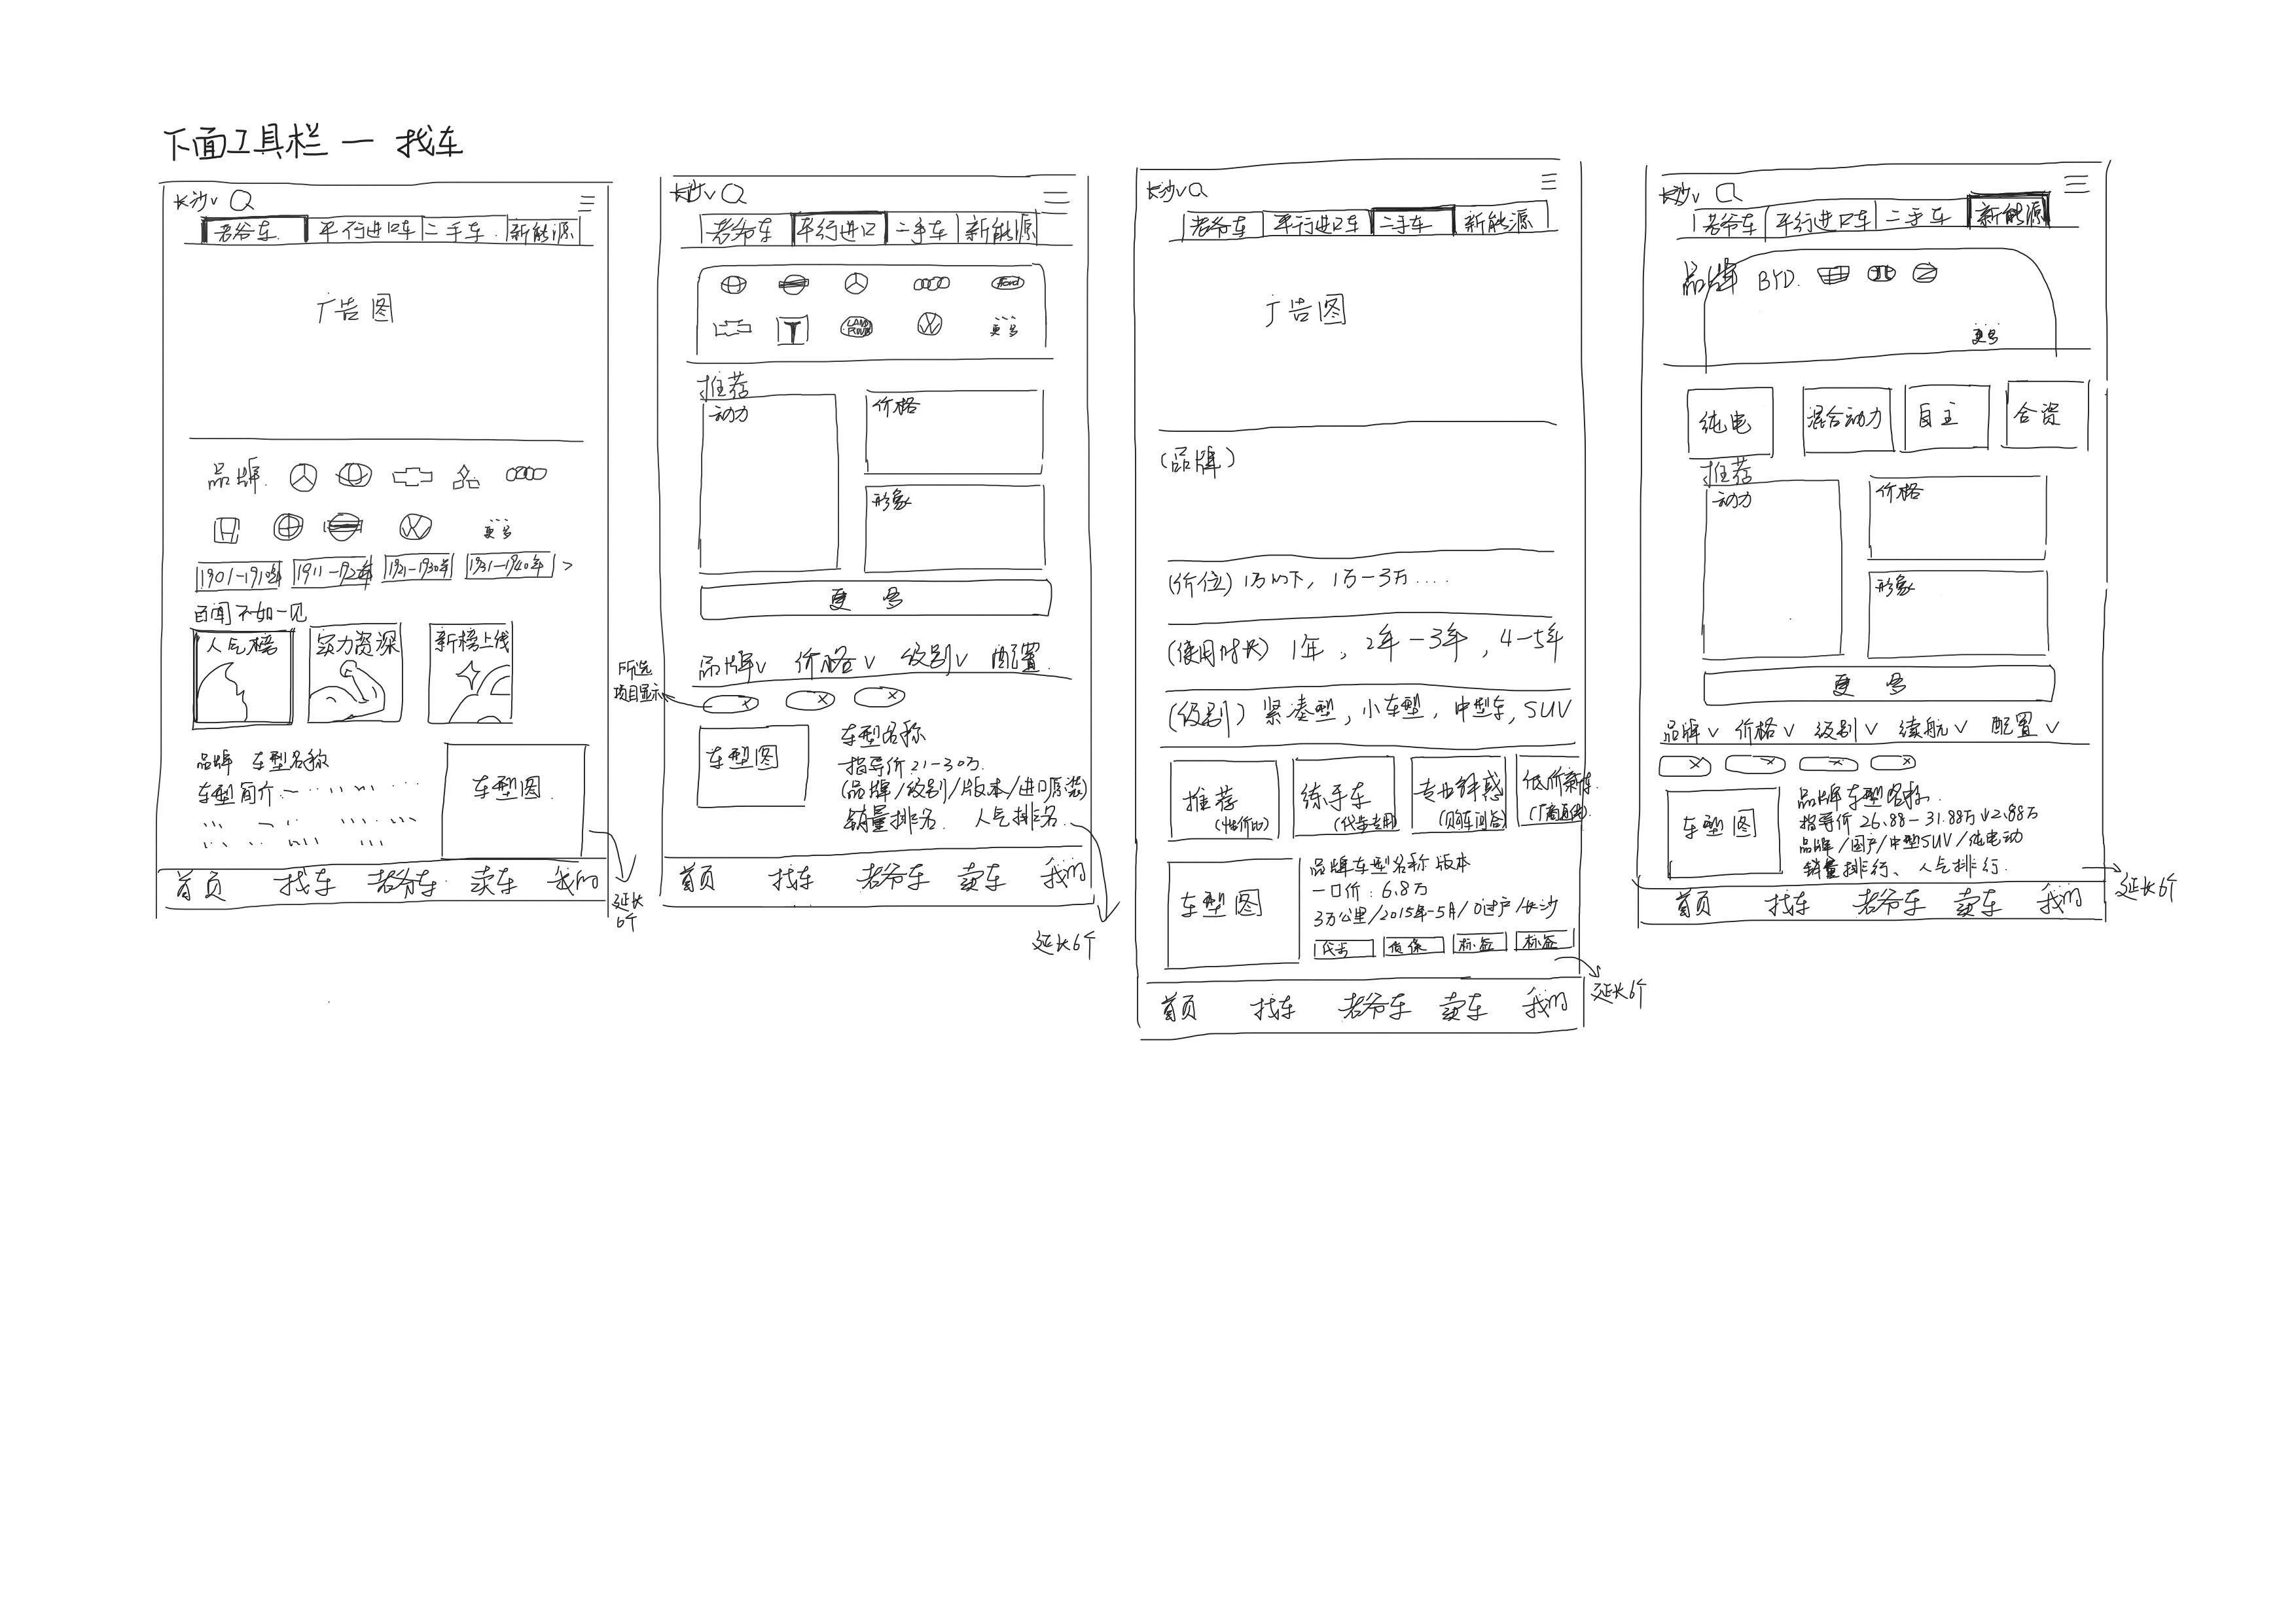 下面工具栏 — 找车
长沙∨
老爷车 平行进口车 二手车 新能源
广告图
品牌
更多
1901-1910年 1911-1920年 1921-1930年 1931-1940年 >
百闻不如一见
人气榜 实力资深 新榜上线
品牌 车型名称
车型简介
车型图
首页 找车 老爷车 卖车 我的
延长6个
长沙∨
老爷车 平行进口 二手车 新能源
Ford
T LAND ROVER
更多
推荐
动力
价格
形象
更多
品牌∨ 价格∨ 级别∨ 配置
所选项目显示
× × ×
车型图
车型名称
指导价 21-30万
(品牌/级别/版本/进口原装)
销量排名 人气排名
首页 找车 老爷车 卖车 我的
延长6个
长沙∨
老爷车 平行进口车 二手车 新能源
广告图
(品牌)
(价位) 1万以下, 1万-3万....
(使用时长) 1年, 2年-3年, 4-5年
(级别) 紧凑型, 小车型, 中型车, SUV
推荐 练手车 专业解惑 低价新车
(性价比) (代步专用) (购车问答) (厂商直销)
车型图
品牌车型名称 版本
一口价: 6.8万
3万公里/2015年-5月/0过户/长沙
代步 质保 标签 标签
首页 找车 老爷车 卖车 我的
延长6个
长沙∨
老爷车 平行进口车 二手车 新能源
品牌 BYD.
更多
纯电 混合动力 自主 合资
推荐
动力
价格
形象
更多
品牌∨ 价格∨ 级别∨ 续航∨ 配置∨
× × × ×
车型图
品牌车型名称.
指导价 26.88-31.88万↓2.88万
品牌/国产/中型SUV/纯电动
销量排行、人气排行.
首页 找车 老爷车 卖车 我的
延长6个